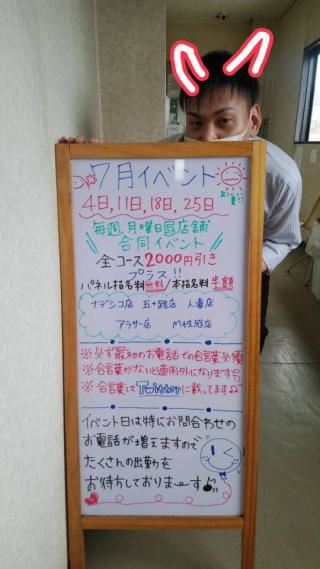 7月イベント
4日,11日,18日,25日
毎週月曜日5店舗
合同イベント
全コース2000円引き
プラス!!
パネル指名料無料/本指名料半額
ナデシコ店 五十路店 人妻店
アラサー店 M性感店
※必ず最初のお電話での合言葉必須
※合言葉がないと適用外になります
※合言葉はTwitterに載ってます♪
イベント日は特にお問合わせの
お電話が増えますので
たくさんの出勤を
お待ちしておりま〜す♪